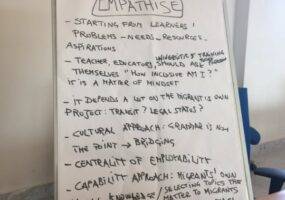 EMPATHISE
- STARTING FROM LEARNERS'
PROBLEMS - NEEDS, RESOURCES,
ASPIRATIONS
- TEACHER, EDUCATORS, LINGUISTIC & TRAINING
SHOULD ASK
THEMSELVES "HOW INCLUSIVE AM I?"
IT IS A MATTER OF MINDSET
- IT DEPENDS A LOT ON THE MIGRANT'S OWN
PROJECT: TRANSIT? LEGAL STATUS?
- CULTURAL APPROACH: GRAMMAR IS NOT
THE POINT → BRIDGING
- CENTRALITY OF EMPLOYABILITY
- CAPABILITY APPROACH: MIGRANTS' OWN
KNOWLEDGE / SELECTING TOPICS THAT
MATTER TO MIGRANTS